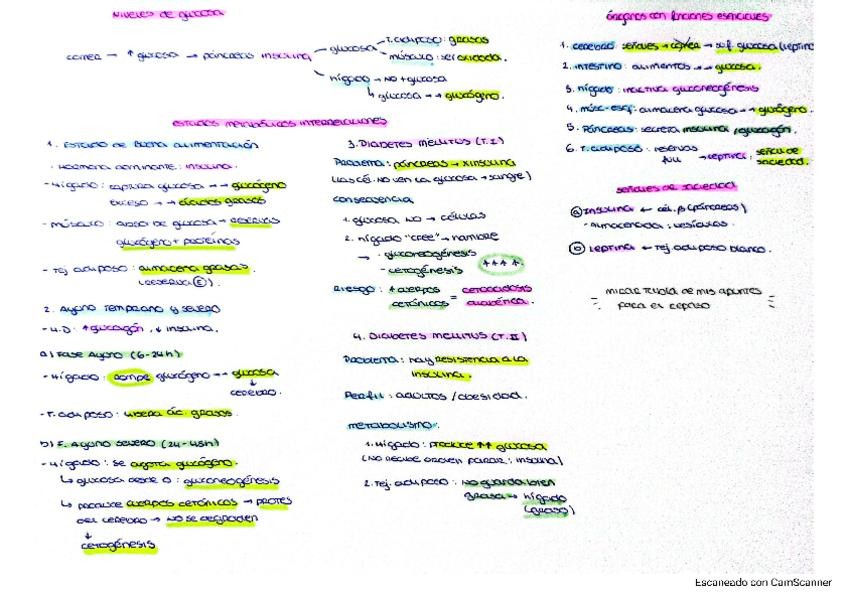 Niveles de glucosa
comer → ↑ glucosa → páncreas insulina
glucosa
T. adiposo: grasas
músculo: ser oxidada.
hígado → NO + glucosa
↳ glucosa → → glucógeno.
Estados metabólicos interrelaciones
1. Estado de buena alimentación
· Hormona dominante: insulina.
- Hígado: captura glucosa → → glucógeno
exceso → → ácidos grasos
- músculo: glucosa → reservas
glucógeno + proteínas
- Tej adiposo: almacena grasas.
(reserva Ⓔ).
2. Ayuno temprano y severo
- H.D. ↑ glucagón, ↓ insulina.
a) Fase Ayuno (6-24h)
- Hígado: rompe glucógeno → → glucosa
↓
cerebro.
- T. adiposo: libera ác. grasos.
b) F. Ayuno severo (24-48h)
- Hígado: se agota glucógeno.
↳ glucosa desde 0: gluconeogénesis
↳ produce cuerpos cetónicos → protes
del cerebro → no se degraden
↓
cetogénesis
3. Diabetes mellitus (T.I)
Problema: páncreas → x insulina
(las cél. no ven la glucosa → sangre)
consecuencia
1. glucosa NO → células
2. hígado "cree" → hambre
→ · gluconeogénesis
- cetogénesis
+++.
Riesgo: ↑ cuerpos cetónicos = cetoacidosis diabética.
4. Diabetes mellitus (T.II)
Problema: hay resistencia a la
insulina.
Perfil: adultos / obesidad.
metabolismo.
1. Hígado: produce ↑↑ glucosa
(no recibe orden parar: insulina)
2. Tej. adiposo: no guarda bien
grasa → hígado
(graso)
órganos con funciones esenciales
1. cerebro: señales → comer → suf. glucosa (leptina
2. intestino: alimentos → → glucosa.
3. hígado: inactiva gluconeogénesis
4. músc-esq: almacena glucosa → → glucógeno.
5. Páncreas: secreta insulina / glucagón.
6. T. adiposo: reservas full → leptina: señal de saciedad.
señales de saciedad
ⓐ Insulina ← cél. β (páncreas)
- almacenada: vesículas.
ⓑ Leptina ← Tej adiposo blanco.
mirar tabla de mis apuntes
para el repaso
Escaneado con CamScanner